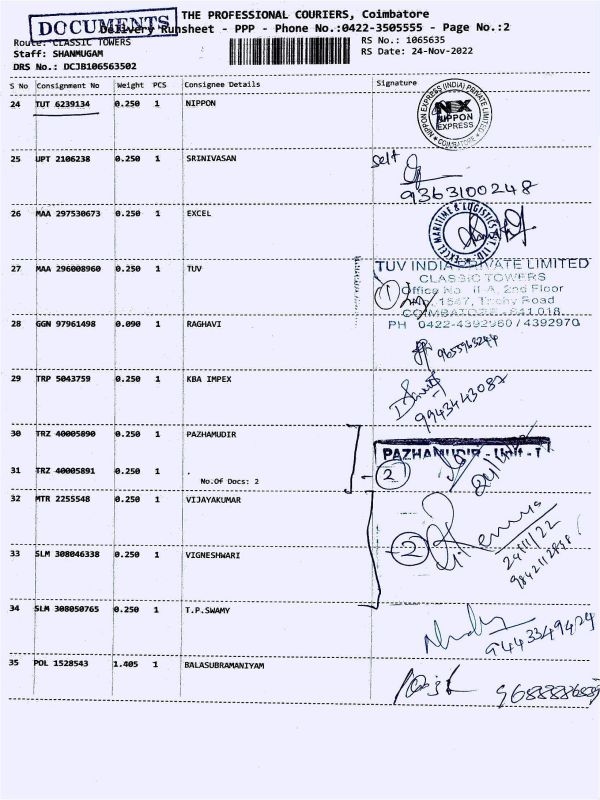 DOCUMENTS
THE PROFESSIONAL COURIERS, Coimbatore
Delivery Runsheet - PPP - Phone No.:0422-3505555 - Page No.:2
Route: CLASSIC TOWERS
RS No.: 1065635
Staff: SHANMUGAM
RS Date: 24-Nov-2022
DRS No.: DCJB106563502
S No Consignment No Weight PCS Consignee Details Signature
24 TUT 6239134 0.250 1 NIPPON
NIPPON EXPRESS (INDIA) PRIVATE LIMITED
NEX
NIPPON
EXPRESS
COIMBATORE
25 UPT 2106238 0.250 1 SRINIVASAN
self
9363100248
26 MAA 297530673 0.250 1 EXCEL
EXCEL MARITIME & LOGISTICS PVT. LTD.
27 MAA 296008960 0.250 1 TUV
TUV INDIA PRIVATE LIMITED
CLASSIC TOWERS
Office No. II-A, 2nd Floor
1547, Trichy Road
COIMBATORE - 641 018.
PH 0422-4392960 / 4392970
1
28 GGN 97961498 0.090 1 RAGHAVI
29 TRP 5043759 0.250 1 KBA IMPEX
9943443087
30 TRZ 40005890 0.250 1 PAZHAMUDIR
PAZHAMUDIR - Unit - I
31 TRZ 40005891 0.250 1 .
2
No.Of Docs: 2
32 MTR 2255548 0.250 1 VIJAYAKUMAR
2
24/11/22
33 SLM 308046338 0.250 1 VIGNESHWARI
34 SLM 308050765 0.250 1 T.P.SWAMY
9443349424
35 POL 1528543 1.405 1 BALASUBRAMANIYAM